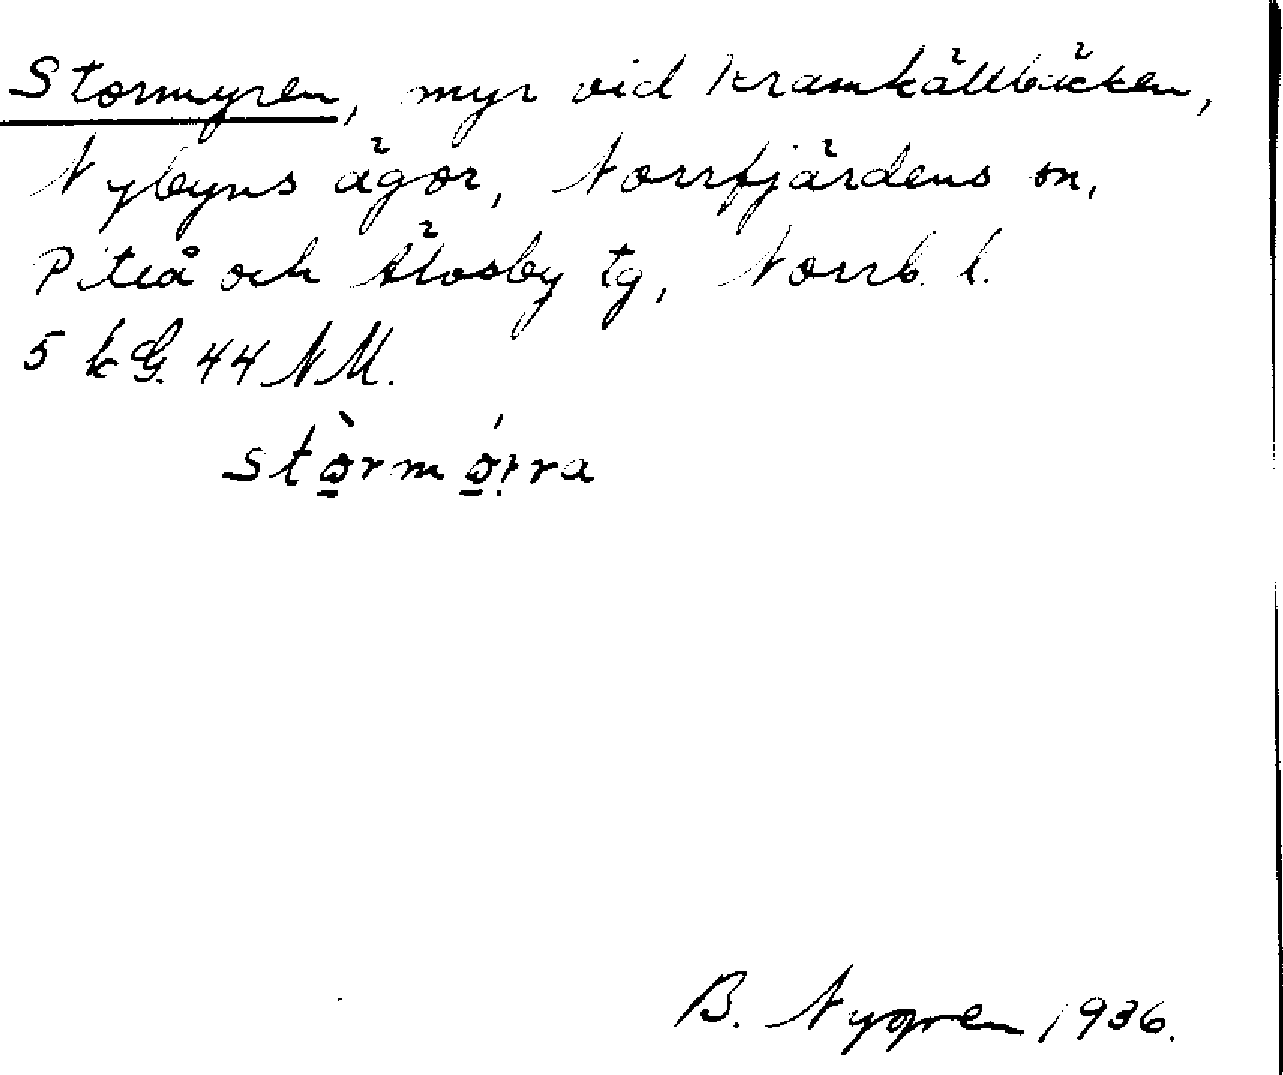 Stormyren, myr vid Kramkällbäcken,
Nybyns ägor, Norrfjärdens sn,
Piteå och Älvsby tg, Norrb. l.
5 kG. 44 NM.
B. Nygren 1936.